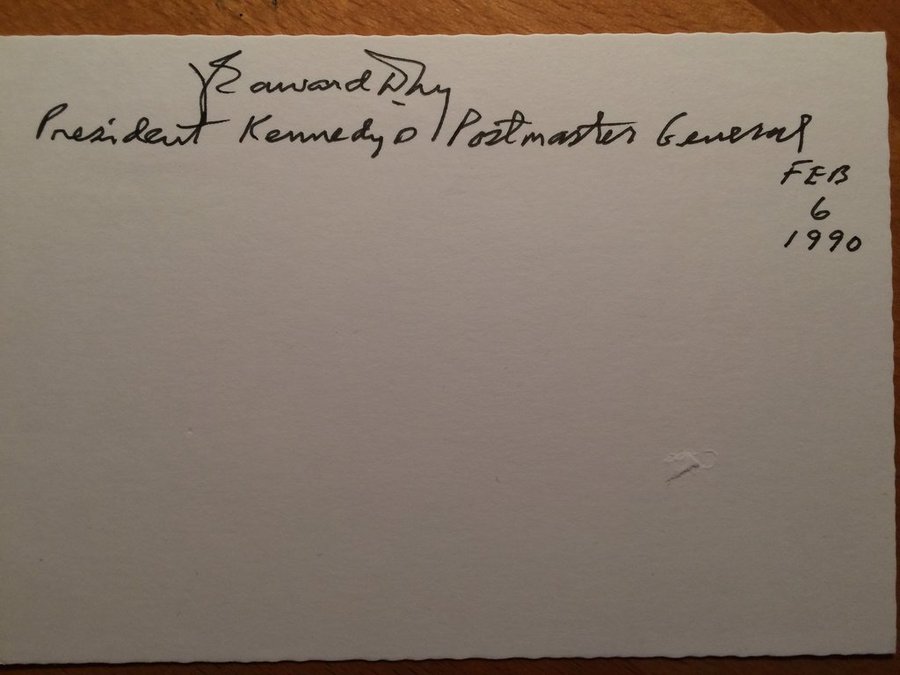 Edward Day
President Kennedy's Postmaster General
FEB
6
1990